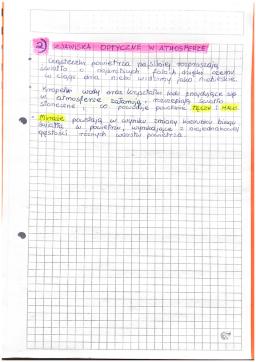 2 ZJAWISKA OPTYCZNE W ATMOSFERZE
Cząsteczki powietrza najsilniej rozpraszają
światło o najkrótszych falach dzięki czemu
w ciągu dnia niebo widzimy jako niebieskie.
Kropelki wody oraz kryształki lodu znajdujące się
w atmosferze załamują i rozszczepiają światło
słoneczne, co powoduje powstanie TĘCZY I HALO.
Miraże powstają w wyniku zmiany kierunku biegu
światła w powietrzu, wynikające z niejednakowej
gęstości różnych warstw powietrza.